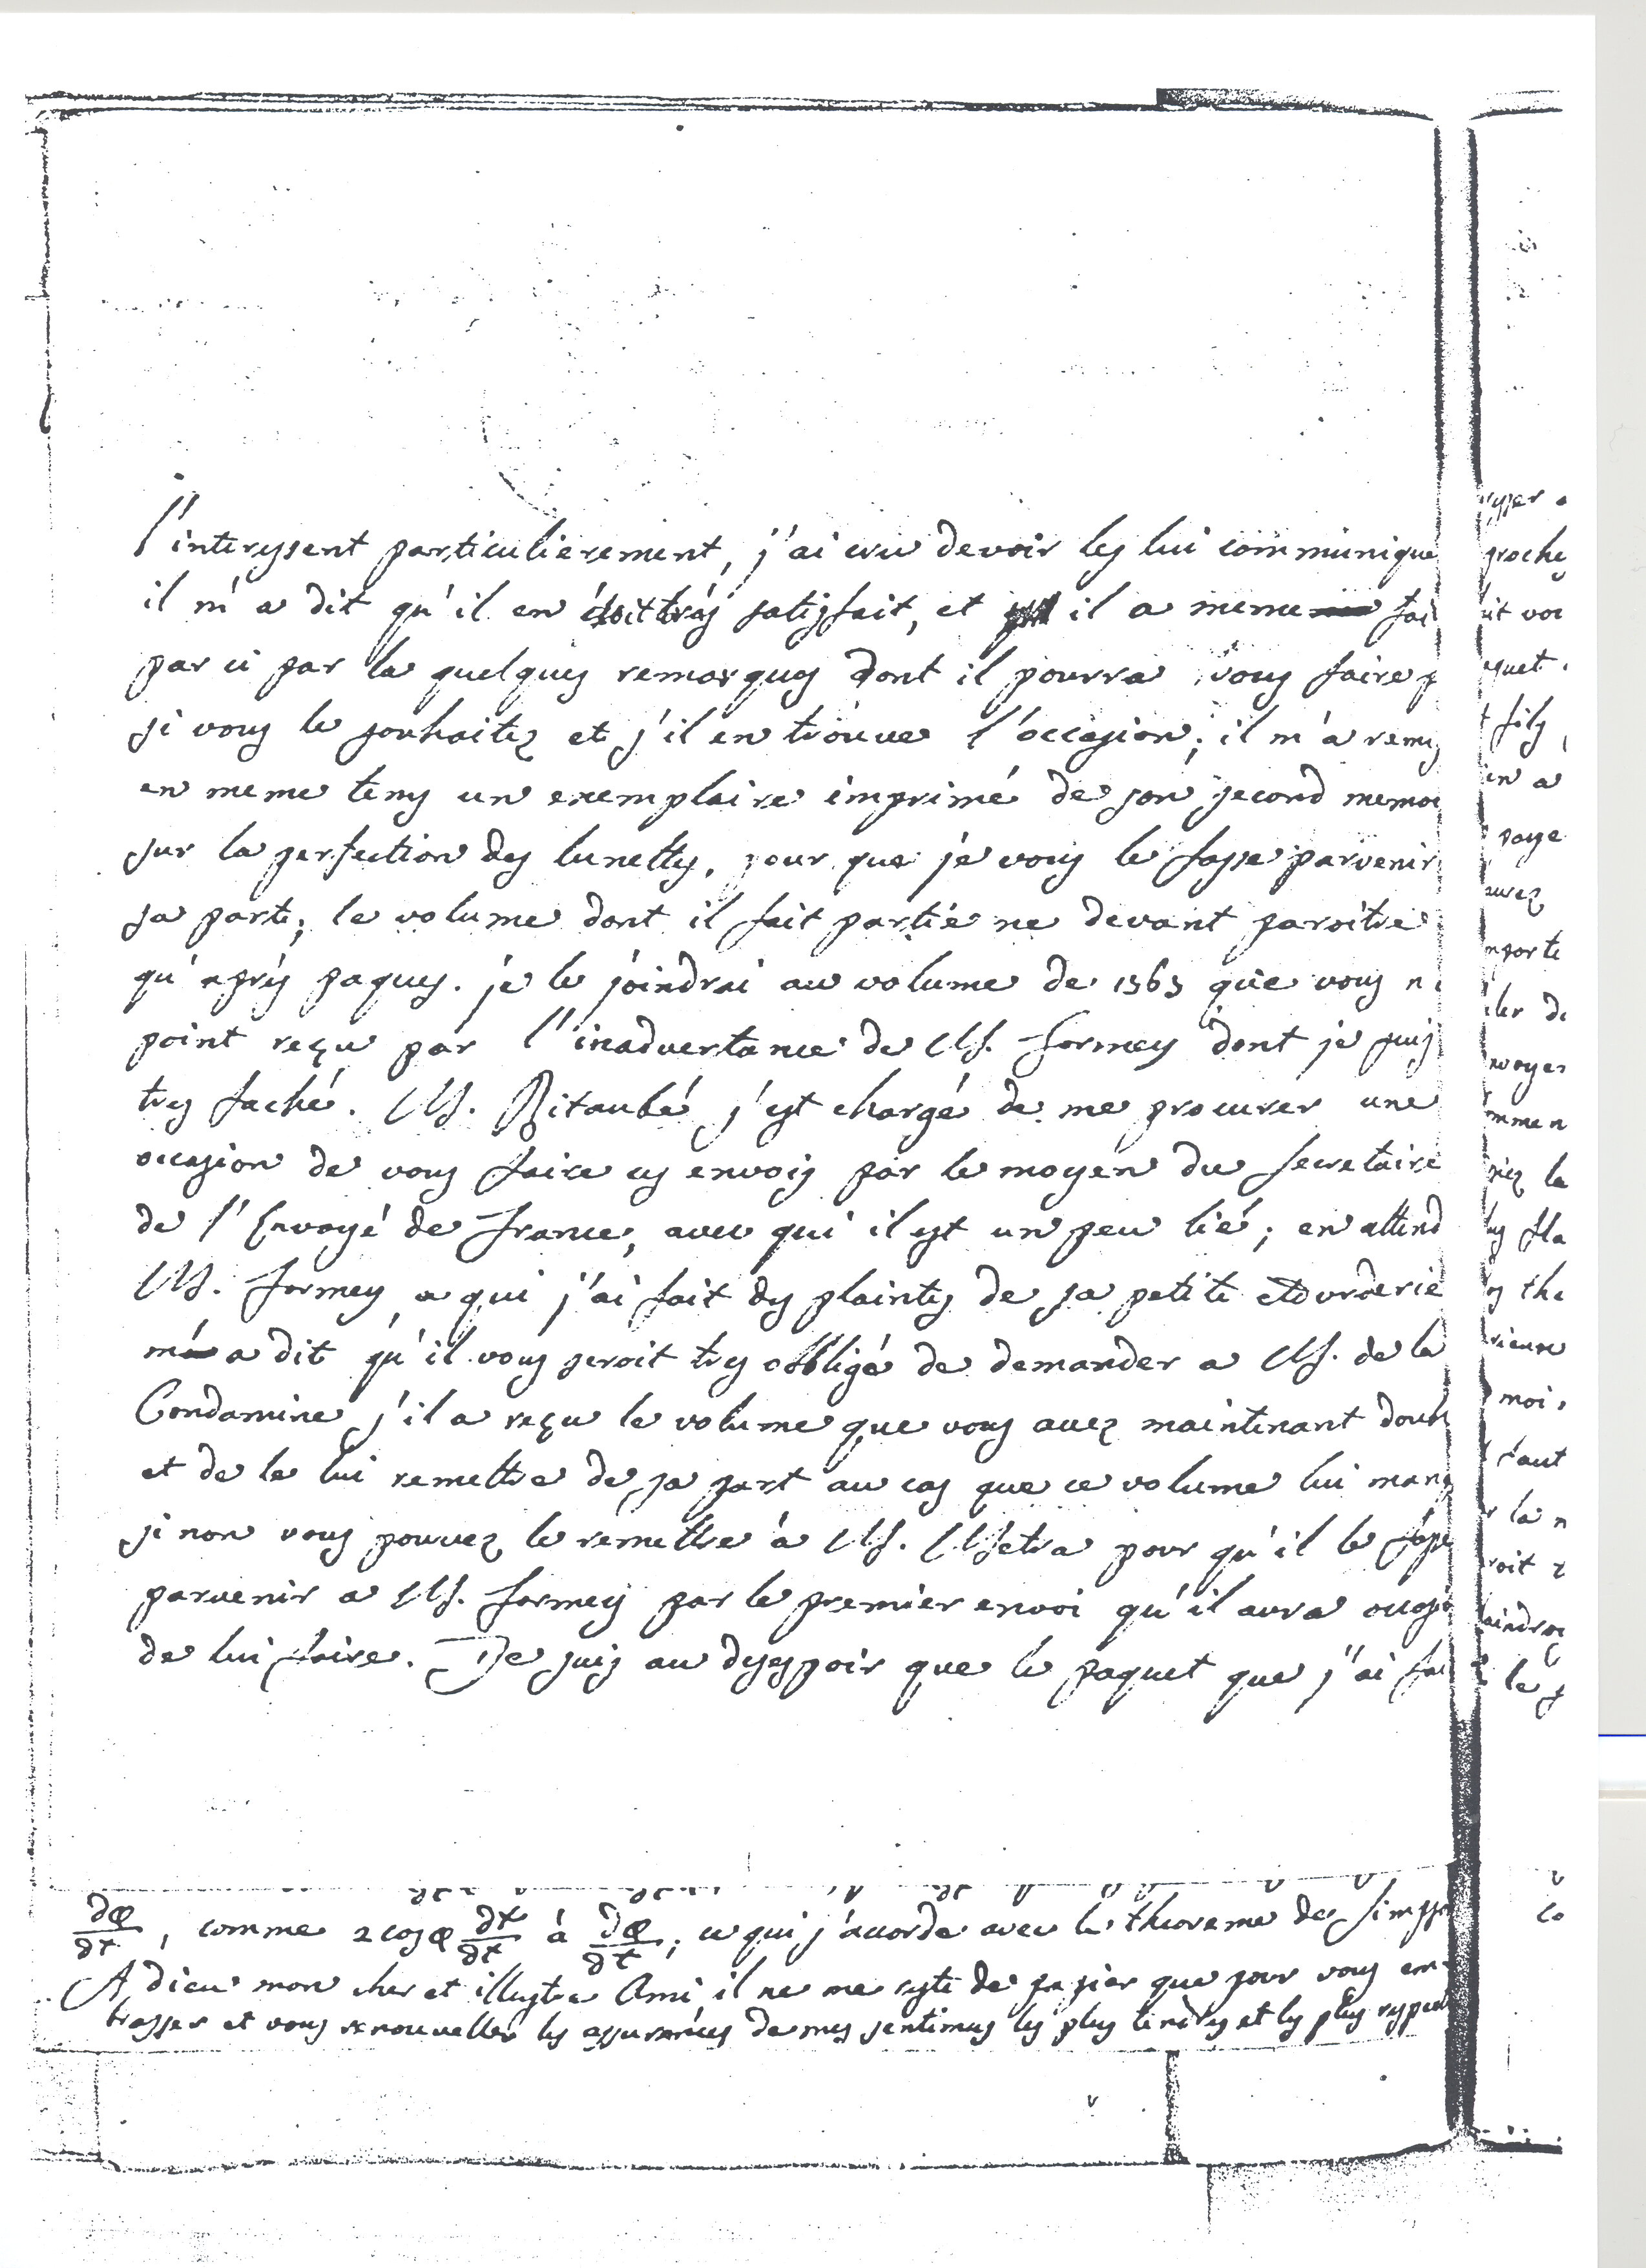 l'interessent particulierement, j'ai cru devoir les lui communique
il m'a dit qu'il en étoit trés satisfait, et il a meme fai
par ci par la quelques remarques dont il pourra vous faire p
si vous le souhaitez et s'il en trouve l'occasion; il m'a remis
en meme tems un exemplaire imprimé de son second memoi
sur la perfection des lunettes, pour que je vous le fasse parvenir
sa part; le volume dont il fait partie ne devant paroitre
qu'aprés paques. je le joindrai au volume de 1763 que vous n
point reçu par l'inadvertance de M. Formey dont je suis
tres faché. M. Bitaubé s'est chargé de me procurer une
occasion de vous faire ces envois par le moyen du Secretaire
de l'Envoyé de France, avec qui il est un peu lié; en attend
M. Formey a qui j'ai fait des plaintes de sa petite etourderie
m'a dit qu'il vous seroit tres obbligé de demander a M. de la
Condamine s'il a reçu le volume que vous avez maintenant doub
et de le lui remettre de sa part au cas que ce volume lui manq
si non vous pouvez le remettre à M. Metra pour qu'il le fasse
parvenir a M. Formey par le premier envoi qu'il aura occasio
de lui faire. Je suis au desespoir que le paquet que j'ai fai
∂φ/∂t, comme 2 cos φ ∂x/∂t à ∂φ/∂t; ce qui s'accorde avec le theoreme de Simpson
Adieu mon cher et illustre Ami il ne me reste de papier que pour vous em-
brasser et vous renouveller les assurances de mes sentimens les plus tendres et les plus respect